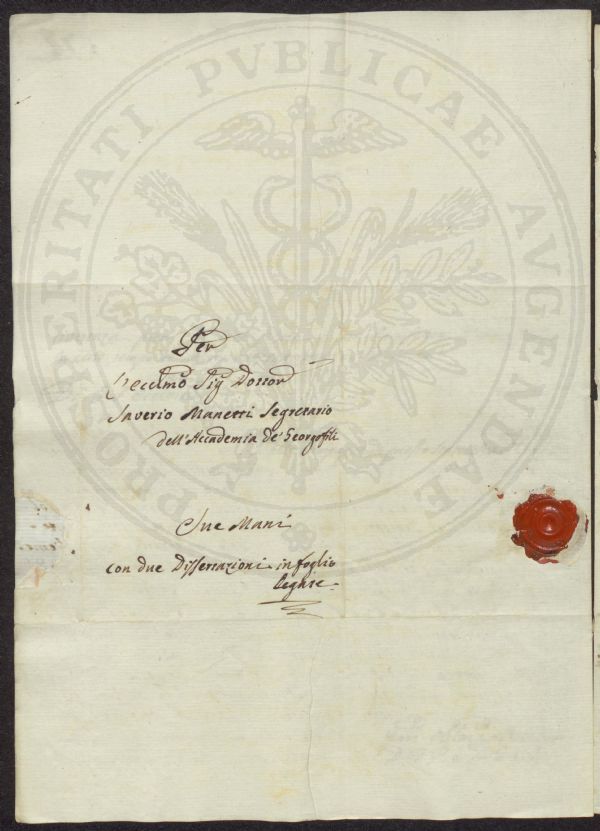 PROSPERITATI PVBLICAE AVGENDAE
Per
l'eccelmo Sig Dottor
Saverio Manetti Segretario
dell'Accademia de Georgofili
Sue Mani
con due Dissertazioni in foglio
legate